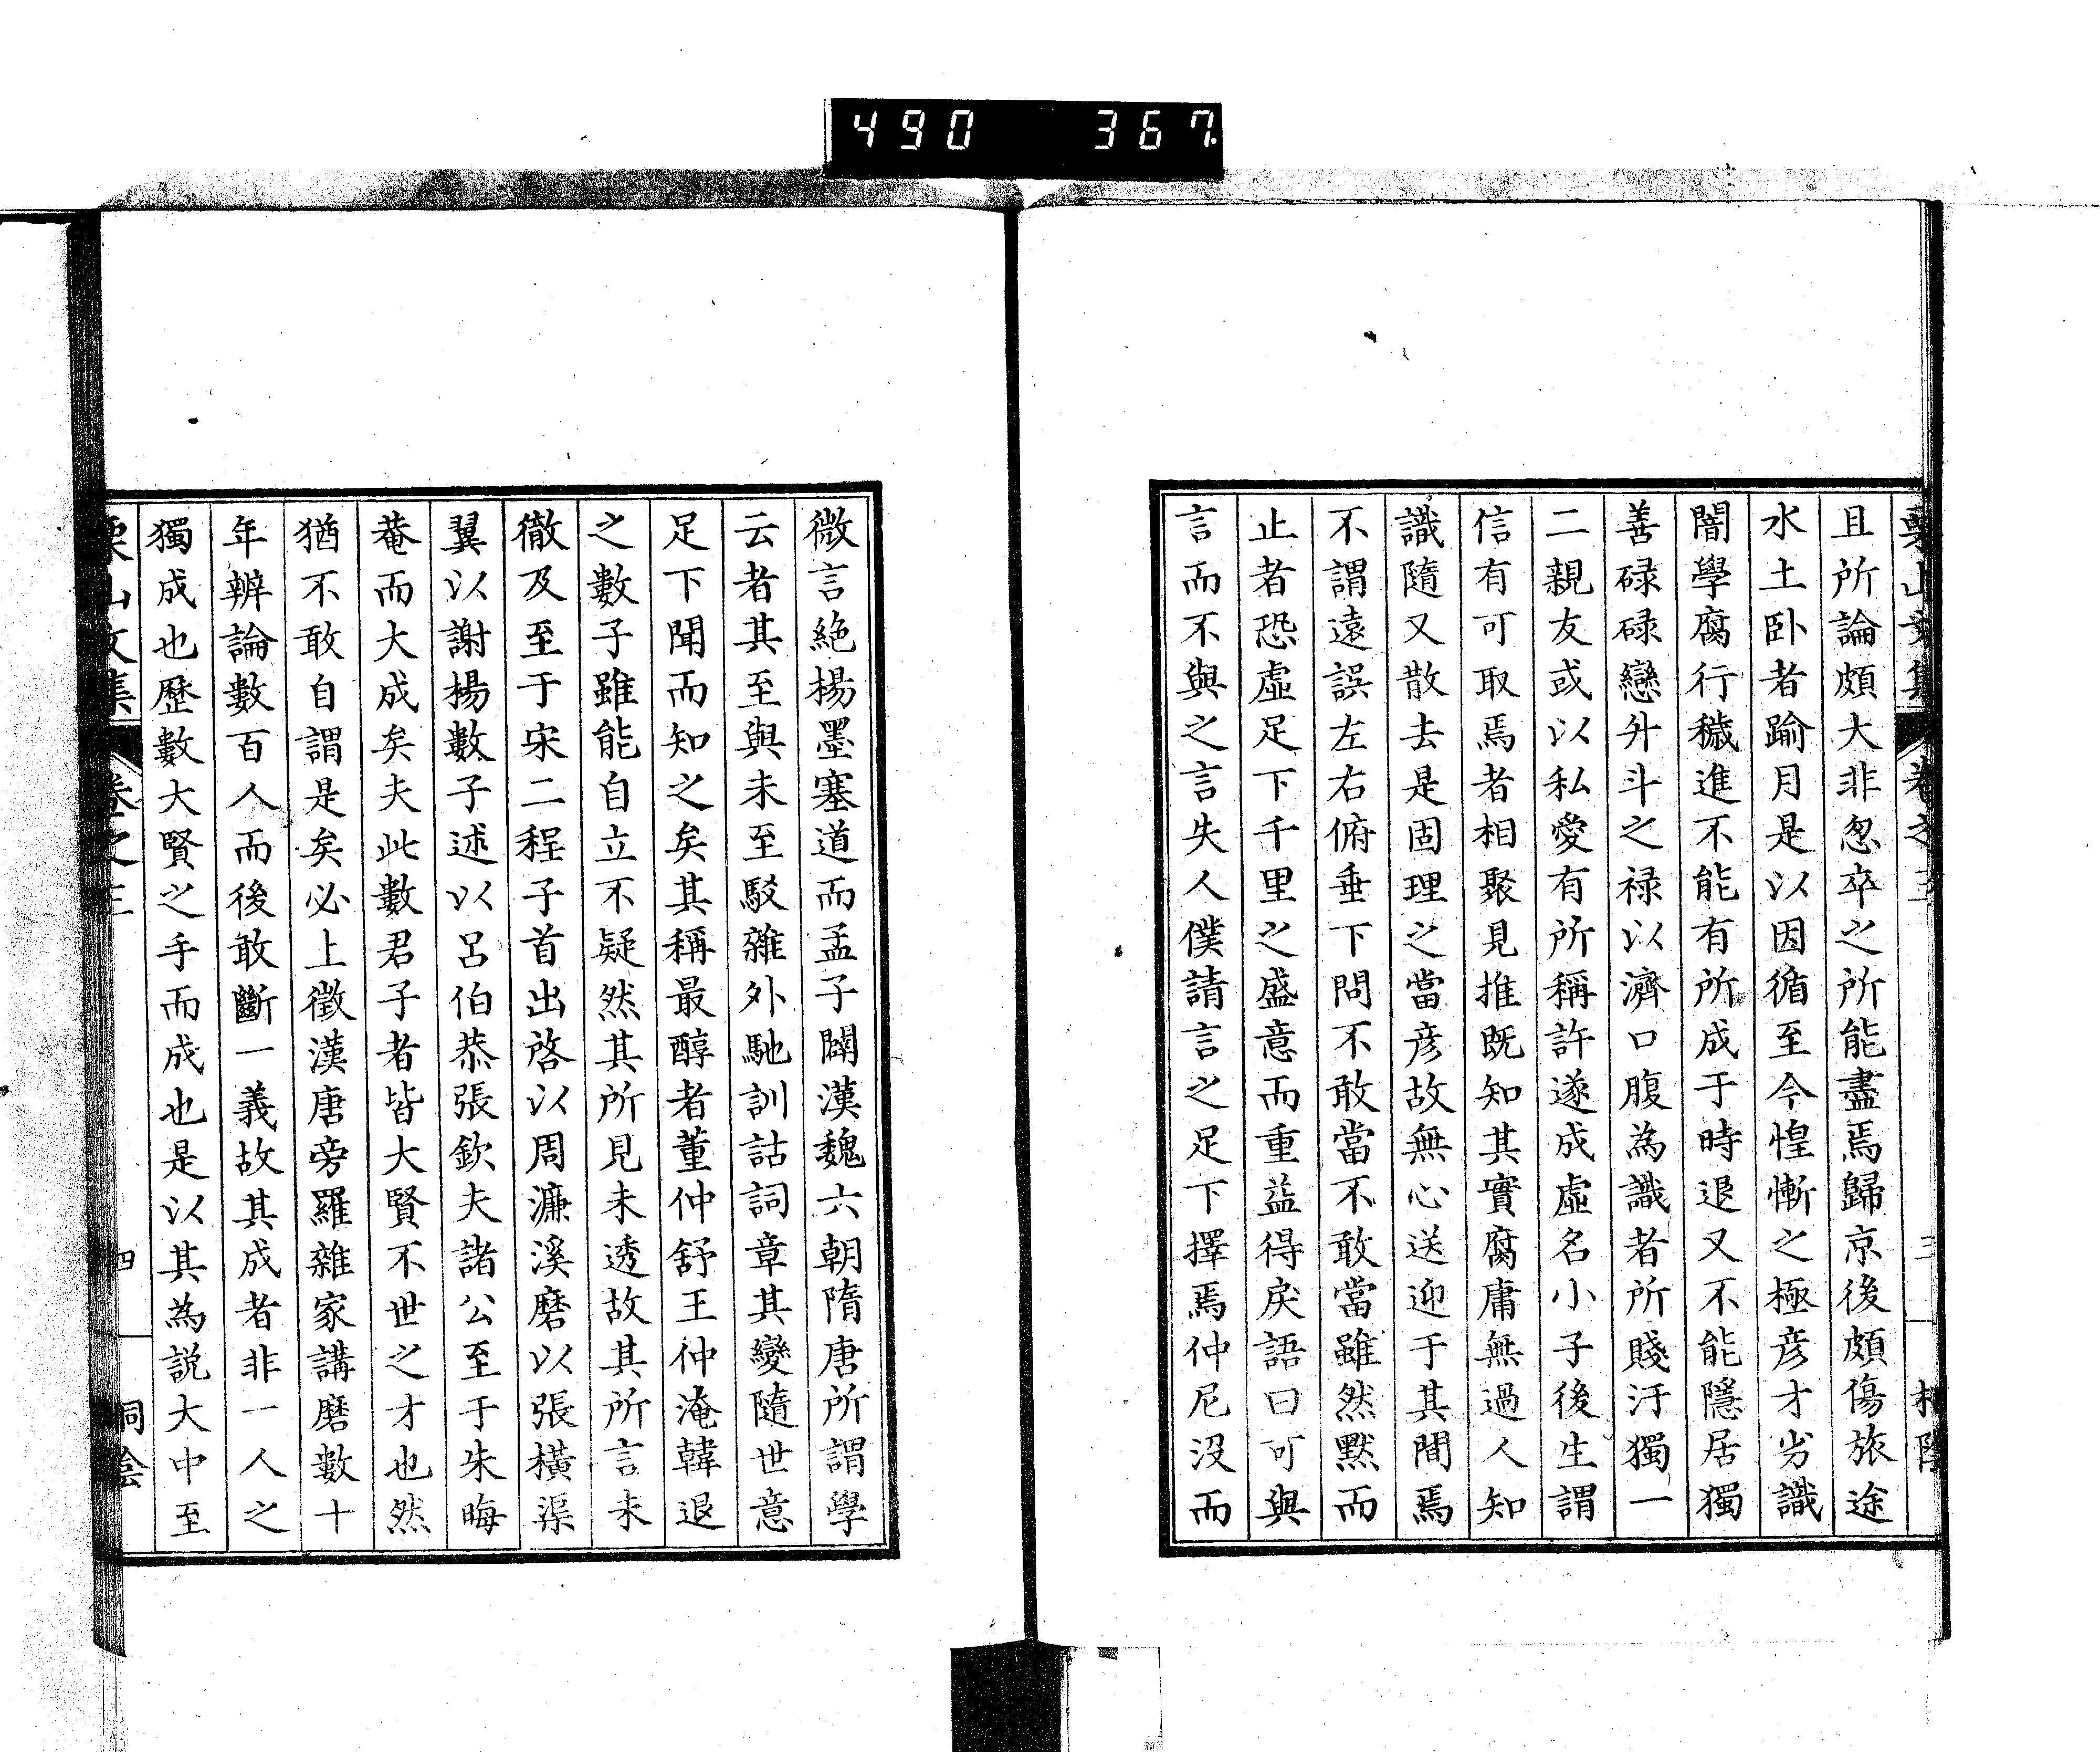 490 367
且所論頗大非忽卒之所能盡焉歸京後頗傷旅途
水土卧者踰月是以因循至今惶慚之極彦才劣識
闇學腐行穢進不能有所成于時退又不能隱居獨
善碌碌戀升斗之禄以濟口腹為識者所賤汙獨一
二親友或以私愛有所稱許遂成虛名小子後生謂
信有可取焉者相聚見推既知其實腐庸無過人知
識隨又散去是固理之當彦故無心送迎于其間焉
不謂遠誤左右俯垂下問不敢當不敢當雖然默而
止者恐虛足下千里之盛意而重益得戾語曰可與
言而不與之言失人僕請言之足下擇焉仲尼沒而
微言絶楊墨塞道而孟子闢漢魏六朝隋唐所謂學
云者其至與未至駁雜外馳訓詁詞章其變隨世意
足下聞而知之矣其稱最醇者董仲舒王仲淹韓退
之數子雖能自立不疑然其所見未透故其所言未
徹及至于宋二程子首出啓以周濂溪磨以張橫渠
翼以謝楊數子述以呂伯恭張欽夫諸公至于朱晦
菴而大成矣夫此數君子者皆大賢不世之才也然
猶不敢自謂是矣必上徵漢唐旁羅雜家講磨數十
年辨論數百人而後敢斷一義故其成者非一人之
獨成也歷數大賢之手而成也是以其為説大中至
栗山文集 卷之三 四 桐陰